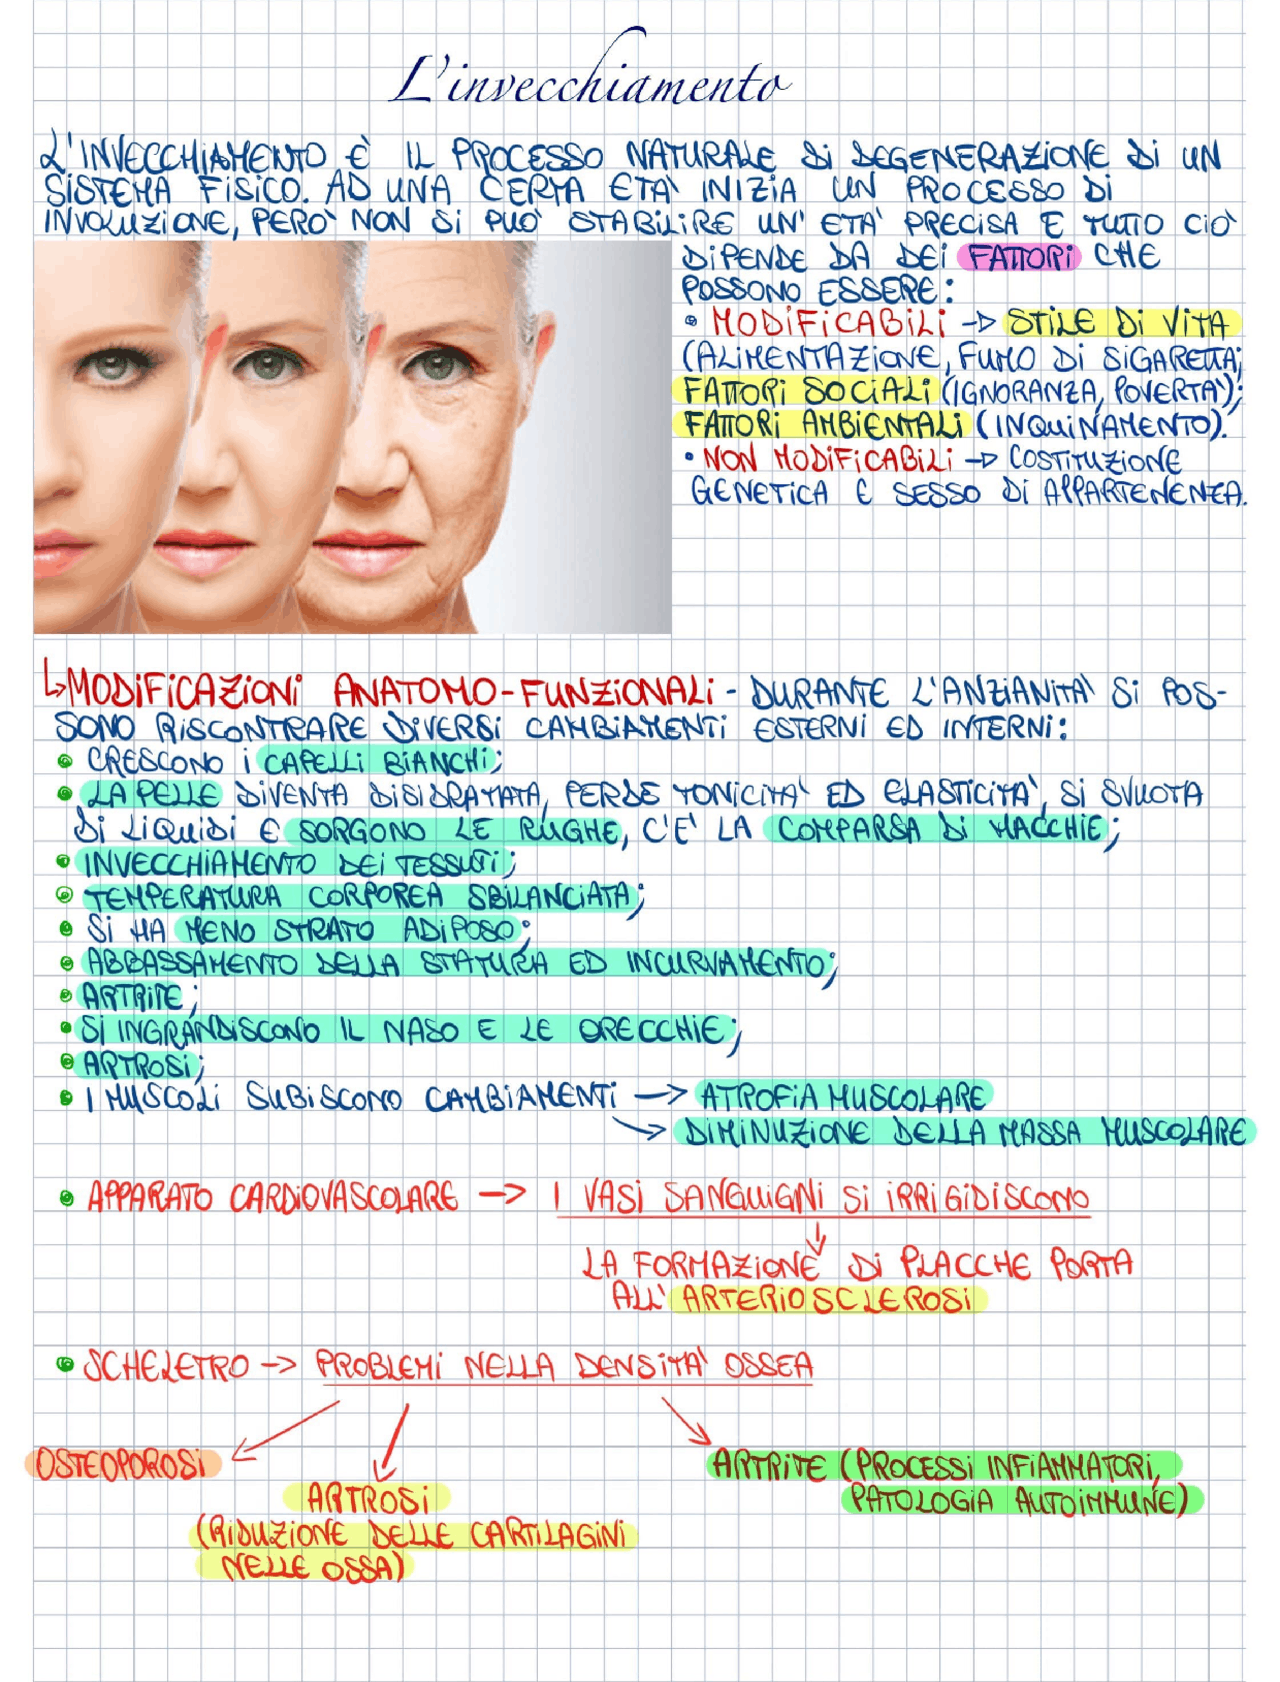 L'invecchiamento
L'INVECCHIAMENTO È IL PROCESSO NATURALE DI DEGENERAZIONE DI UN
SISTEMA FISICO. AD UNA CERTA ETA' INIZIA UN PROCESSO DI
INVOLUZIONE, PERO' NON SI PUO' STABILIRE UN' ETA' PRECISA E TUTTO CIO'
DIPENDE DA DEI FATTORI CHE
POSSONO ESSERE:
• MODIFICABILI -> STILE DI VITA
(ALIMENTAZIONE, FUMO DI SIGARETTA;
FATTORI SOCIALI (IGNORANZA, POVERTA');
FATTORI AMBIENTALI (INQUINAMENTO).
• NON MODIFICABILI -> COSTITUZIONE
GENETICA E SESSO DI APPARTENENZA.
↳MODIFICAZIONI ANATOMO-FUNZIONALI - DURANTE L'ANZIANITA' SI POS-
SONO RISCONTRARE DIVERSI CAMBIAMENTI ESTERNI ED INTERNI:
• CRESCONO I CAPELLI BIANCHI;
• LA PELLE DIVENTA DISIDRATATA, PERDE TONICITA' ED ELASTICITA', SI SVUOTA
DI LIQUIDI E SORGONO LE RUGHE, C'E' LA COMPARSA DI MACCHIE;
• INVECCHIAMENTO DEI TESSUTI;
• TEMPERATURA CORPOREA SBILANCIATA;
• SI HA MENO STRATO ADIPOSO;
• ABBASSAMENTO DELLA STATURA ED INCURVAMENTO;
• ARTRITE;
• SI INGRANDISCONO IL NASO E LE ORECCHIE;
• ARTROSI;
• I MUSCOLI SUBISCONO CAMBIAMENTI -> ATROFIA MUSCOLARE
-> DIMINUZIONE DELLA MASSA MUSCOLARE
• APPARATO CARDIOVASCOLARE -> I VASI SANGUIGNI SI IRRIGIDISCONO
LA FORMAZIONE DI PLACCHE PORTA
ALL' ARTERIOSCLEROSI
• SCHELETRO -> PROBLEMI NELLA DENSITA' OSSEA
OSTEOPOROSI
ARTROSI
(RIDUZIONE DELLE CARTILAGINI
NELLE OSSA)
ARTRITE (PROCESSI INFIAMMATORI,
PATOLOGIA AUTOIMMUNE)